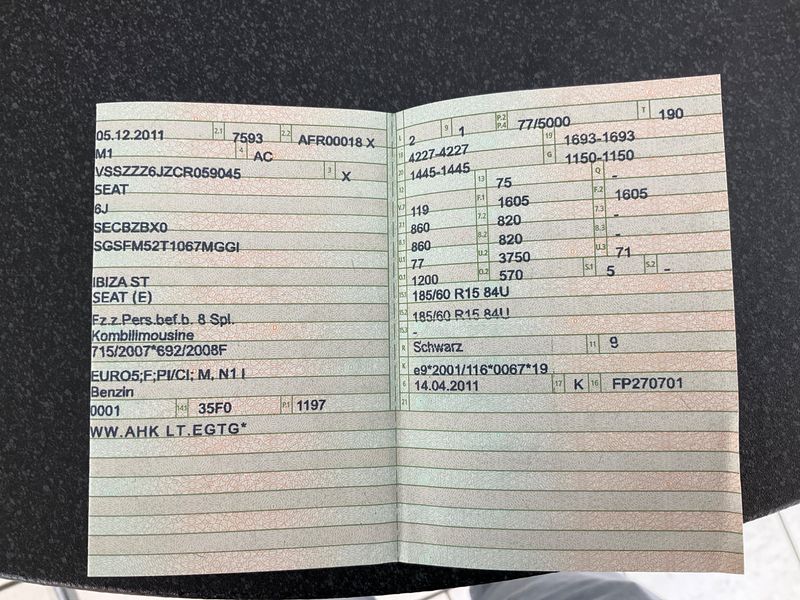 05.12.2011 2.1 7593 2.2 AFR00018 X
M1 4 AC
VSSZZZ6JZCR059045 3 X
SEAT
6J
SECBZBX0
SGSFM52T1067MGGI
IBIZA ST
SEAT (E)
Fz.z.Pers.bef.b. 8 Spl.
Kombilimousine
715/2007*692/2008F
EURO5;F;PI/CI; M, N1 I
Benzin
0001 14.1 35F0 P.1 1197
WW.AHK LT.EGTG*
L 2 9 1 P.2 P.4 77/5000 T 190
18 4227-4227 19 1693-1693
20 1445-1445 G 1150-1150
12 13 75 Q -
V.7 119 F.1 1605 F.2 1605
7.1 860 7.2 820 7.3 -
8.1 860 8.2 820 8.3 -
U.1 77 U.2 3750 U.3 71
O.1 1200 O.2 570 S.1 5 S.2 -
15.1 185/60 R15 84U
15.2 185/60 R15 84U
15.3 -
R Schwarz 11 9
K e9*2001/116*0067*19
6 14.04.2011 17 K 16 FP270701
21